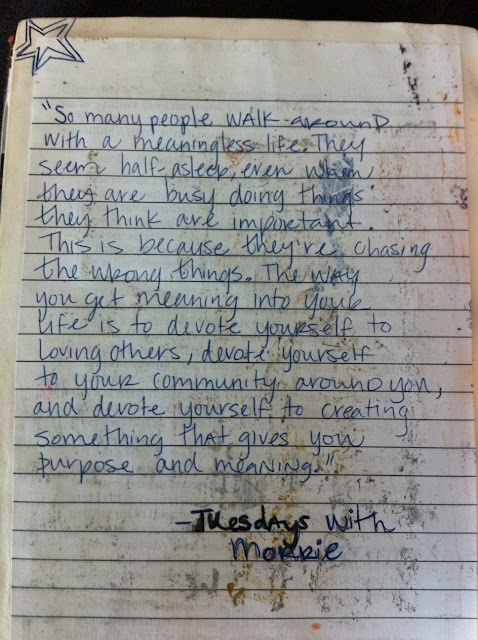 "So many people WALK-around
with a meaningless life. They
seem half-asleep, even when
they are busy doing things
they think are important.
This is because they're chasing
the wrong things. The WAY
you get meaning into your
life is to devote yourself to
loving others, devote yourself
to your community around you,
and devote yourself to creating
something that gives you
purpose and meaning."
-Tuesdays with
Morrie